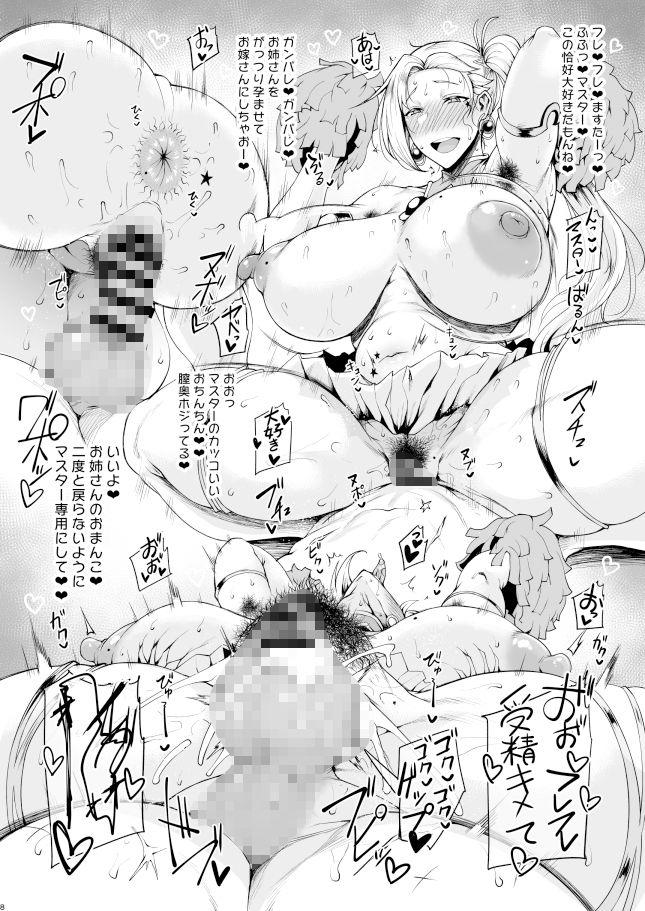 フレ♥フレ♥ますたーっ
ふふっ♥マスター♥
この恰好大好きだもんね♥
あは♥
ガンバレ♥ガンバレ♥
お姉さんを
がっつり孕ませて
お嫁さんにしちゃおー♥
おっ♥
ブポ♥
ぶる
ひく♥
ひく♥
んっ♥
マスター♥
ばるん♥
ヌポッ♥
ブピ♥
ヤベっ♥
キュン♥
キュン♥
おおっ
マスターのカッコいい
おちんちん♥♥
膣奥ホジってる♥
大好き♥
ズチュ
ブチュ
ヌポ♥
ヌブ♥
いいよ♥
お姉さんのおまんこ♥
二度と戻らないように
マスター専用にして♥♥
おおお♥
ビク♥
ゾグ♥
おっ♥
ガク♥
がくっ♥
びゅーー♥
びゅーー♥
おおフレフレ
受精キメて♥
ゴク♥
ゴク♥
ゲップ♥
ブピッ♥
8